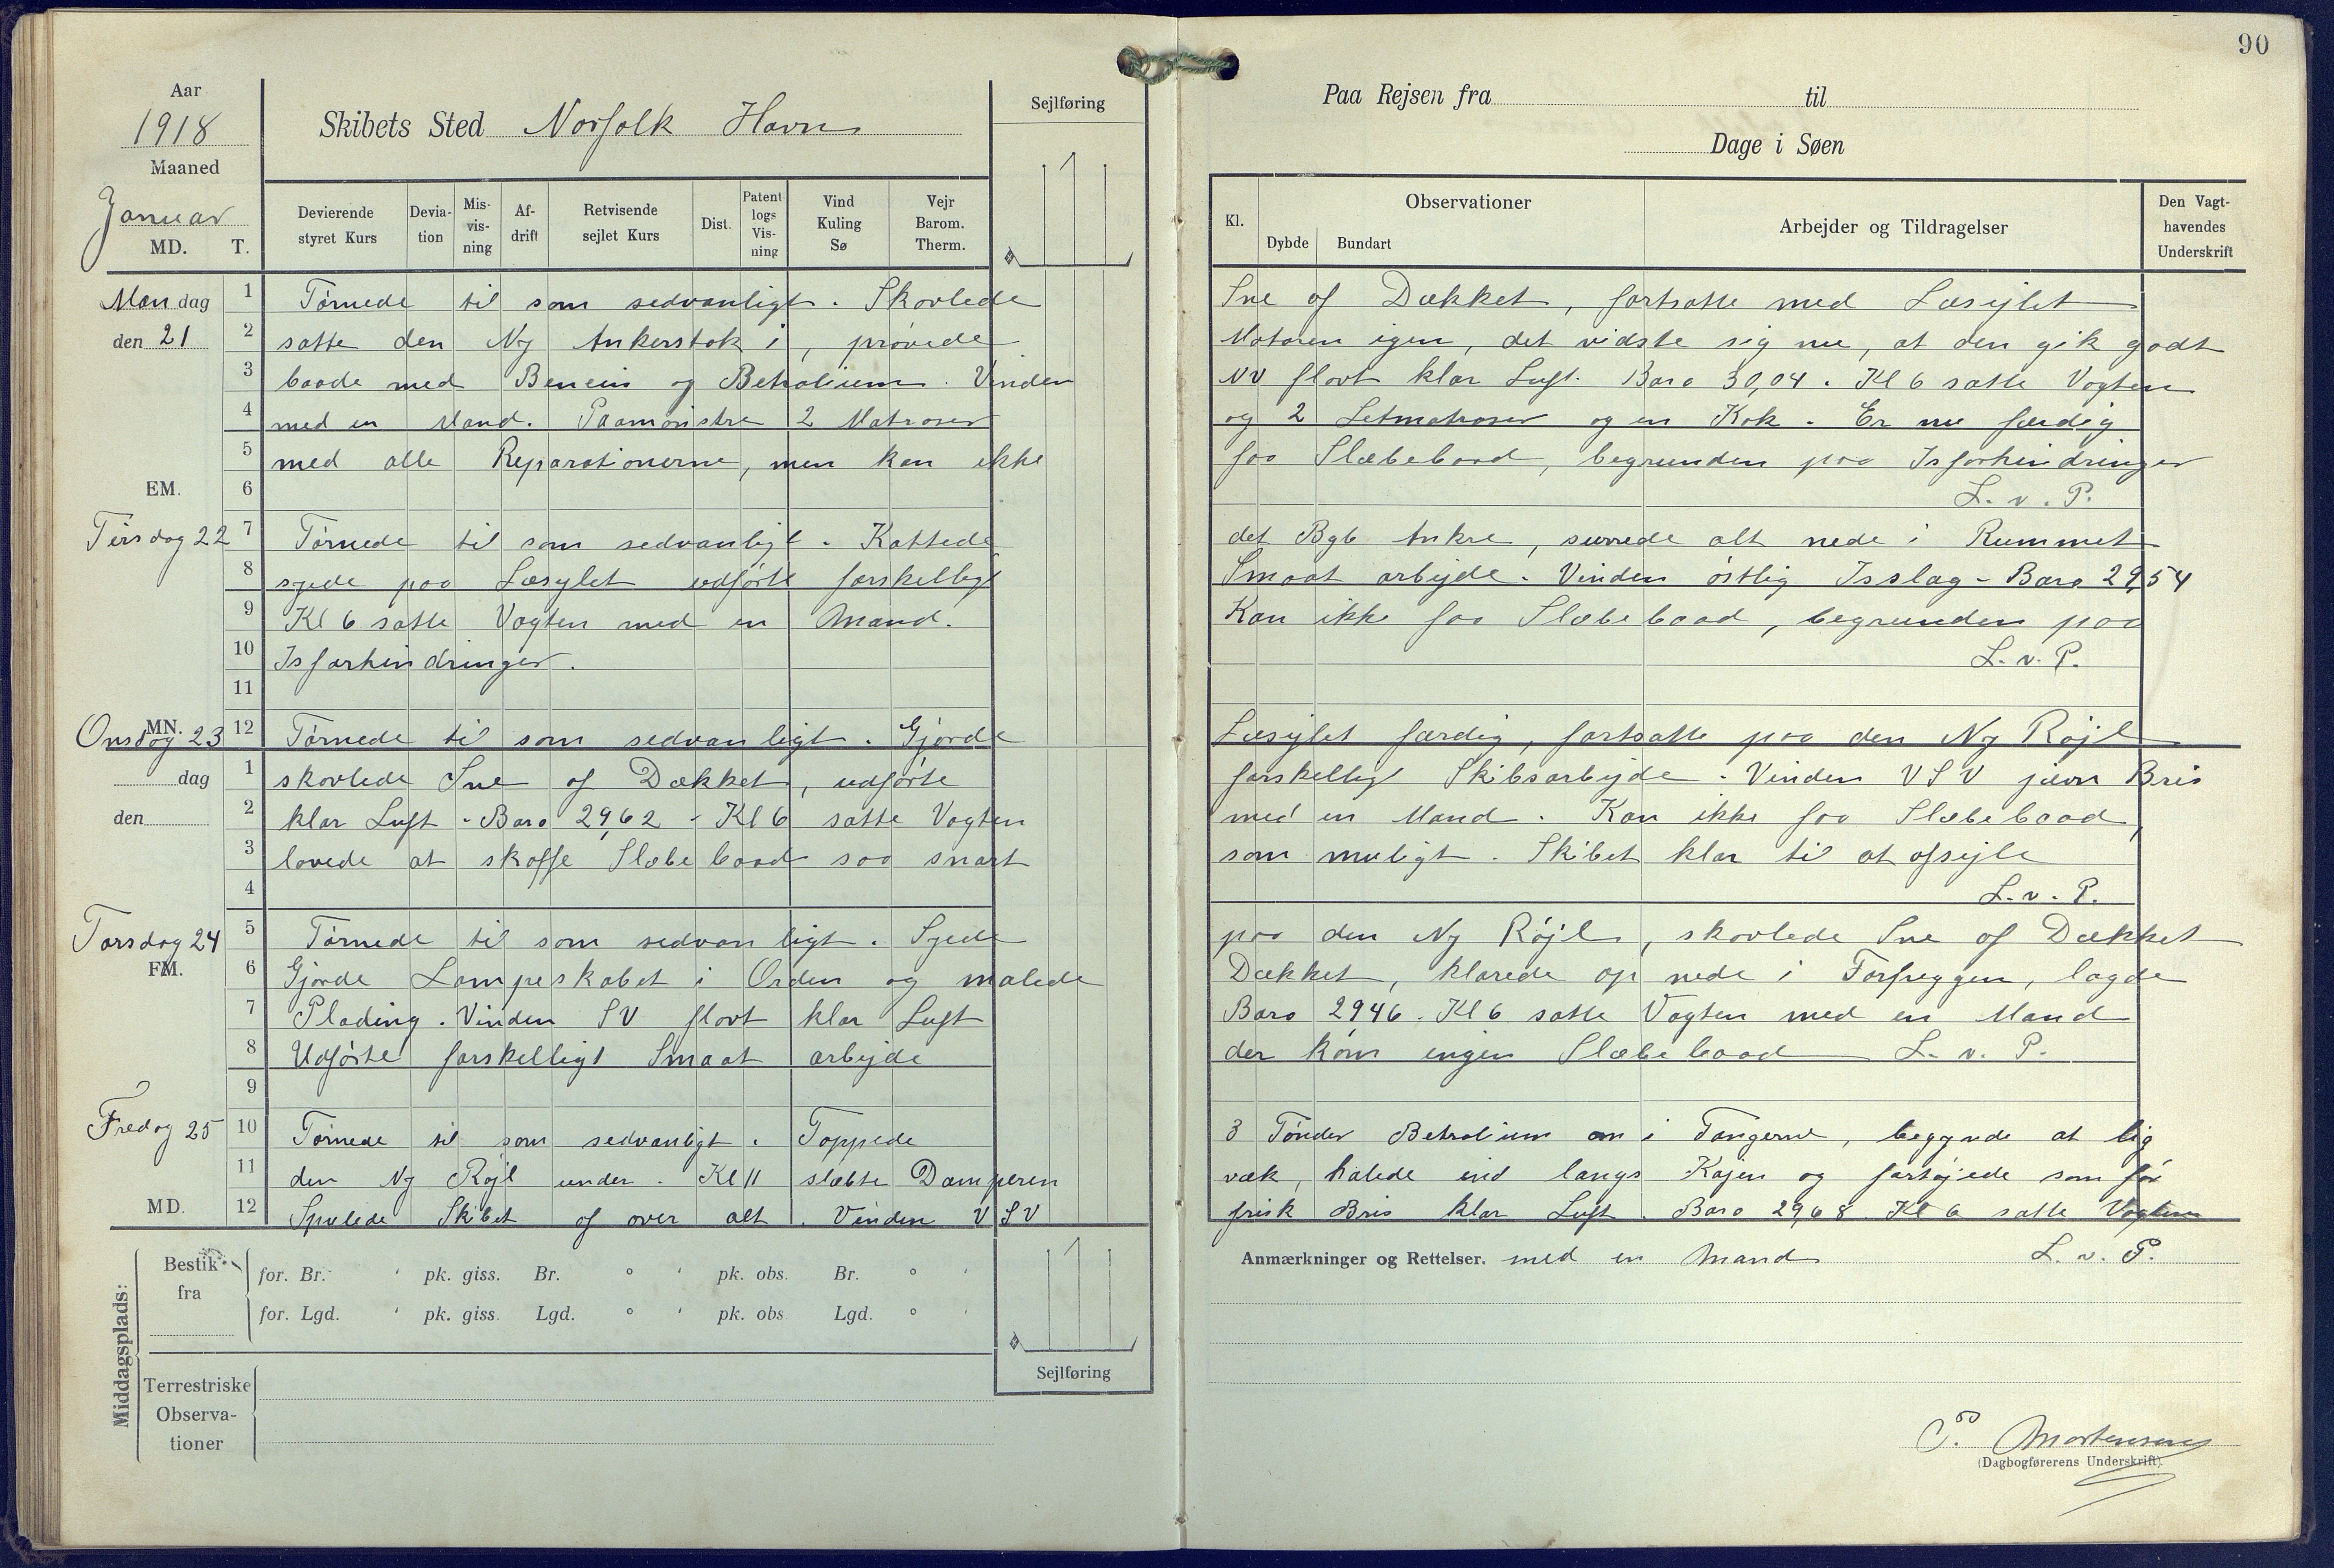 90
Aar
1918
Maaned
Januar
MD. T.
Skibets Sted Norfolk Havn
Sejlføring
Paa Rejsen fra til
Dage i Søen
Devierende styret Kurs
Devia-tion
Mis-vis-ning
Af-drift
Retvisende sejlet Kurs
Dist.
Patent logs Vis-ning
Vind Kuling Sø
Vejr Barom. Therm.
Kl.
Observationer
Dybde Bundart
Arbejder og Tildragelser
Den Vagt-havendes Underskrift
Mandag 1 Tørnede til som sedvanligt. Skovlede Sne af Dækket, fortsatte med Læsejlet
den 21 2 satte den Ny Ankerstok i, prøvede Motoren igen, det vidste sig nu, at den gik godt
3 baade med Bencin og Betrolium. Vinden NV flovt klar Luft. Baro 30,04. Kl 6 satte Vagten
4 med en Mand. Paamønstre 2 Matroser og 2 Letmatroser og en Kok. Er nu færdig
5 med alle Reparationerne, men kan ikke faa Slæbebaad, begrunden paa Isforhindringer
EM. 6 L. v. P.
Tirsdag 22 7 Tørnede til som sedvanligt. Kattede det Bgb Ankre, surrede alt nede i Rummet
8 syede paa Læsylet udførte forskelligt Smaat arbejde. Vinden østlig Isslag - Baro 29,54
9 Kl 6 satte Vagten med en Mand. Kan ikke faa Slæbebaad, begrunden paa
10 Isforhindringer. L. v. P.
11
Onsdag 23 MN. 12 Tørnede til som sedvanligt. Gjorde Læsejlet færdig, fortsatte paa den Ny Røjl
dag 1 skovlede Sne af Dækket, udførte forskelligt Skibsarbejde. Vinden VSV jævn Bris
den 2 klar Luft - Baro 29,62 - Kl 6 satte Vagten med en Mand. Kan ikke faa Slæbebaad,
3 lovede at skaffe Slæbebaad saa snart som muligt. Skibet klar til at afsejle
4 L. v. P.
Torsdag 24 5 Tørnede til som sedvanligt. Syede paa den Ny Røjl, skovlede Sne af Dækket
FM. 6 Gjorde Lampeskabet i Orden og malede Dækket, klarede op nede i Forpeggen, lagde
7 Plading. Vinden SV flovt klar Luft Baro 2946. Kl 6 satte Vagten med en Mand
8 Udførte forskelligt Smaat arbejde der kom ingen Slæbebaad L. v. P.
9
Fredag 25 10 Tørnede til som sedvanligt. Toppede 3 Tønder Betrolium om i Tangerne, begynde at lig
11 den Ny Røjl under. Kl 11 slæbte Damperen væk, halede ind langs Kajen og fortøjede som før
MD. 12 Spulede Skibet af over alt. Vinden VSV frisk Bris klar Luft. Baro 29,68 Kl 6 satte Vagten
Anmærkninger og Rettelser. med en Mand L. v. P.
Middagsplads:
Bestik fra
for. Br. ' pk. giss. Br. ° ' pk. obs. Br. ° '
for. Lgd. ' pk. giss. Lgd. ° ' pk. obs. Lgd. ° '
Sejlføring
Terrestriske Observa-tioner
P. Mortensen
(Dagbogførerens Underskrift).